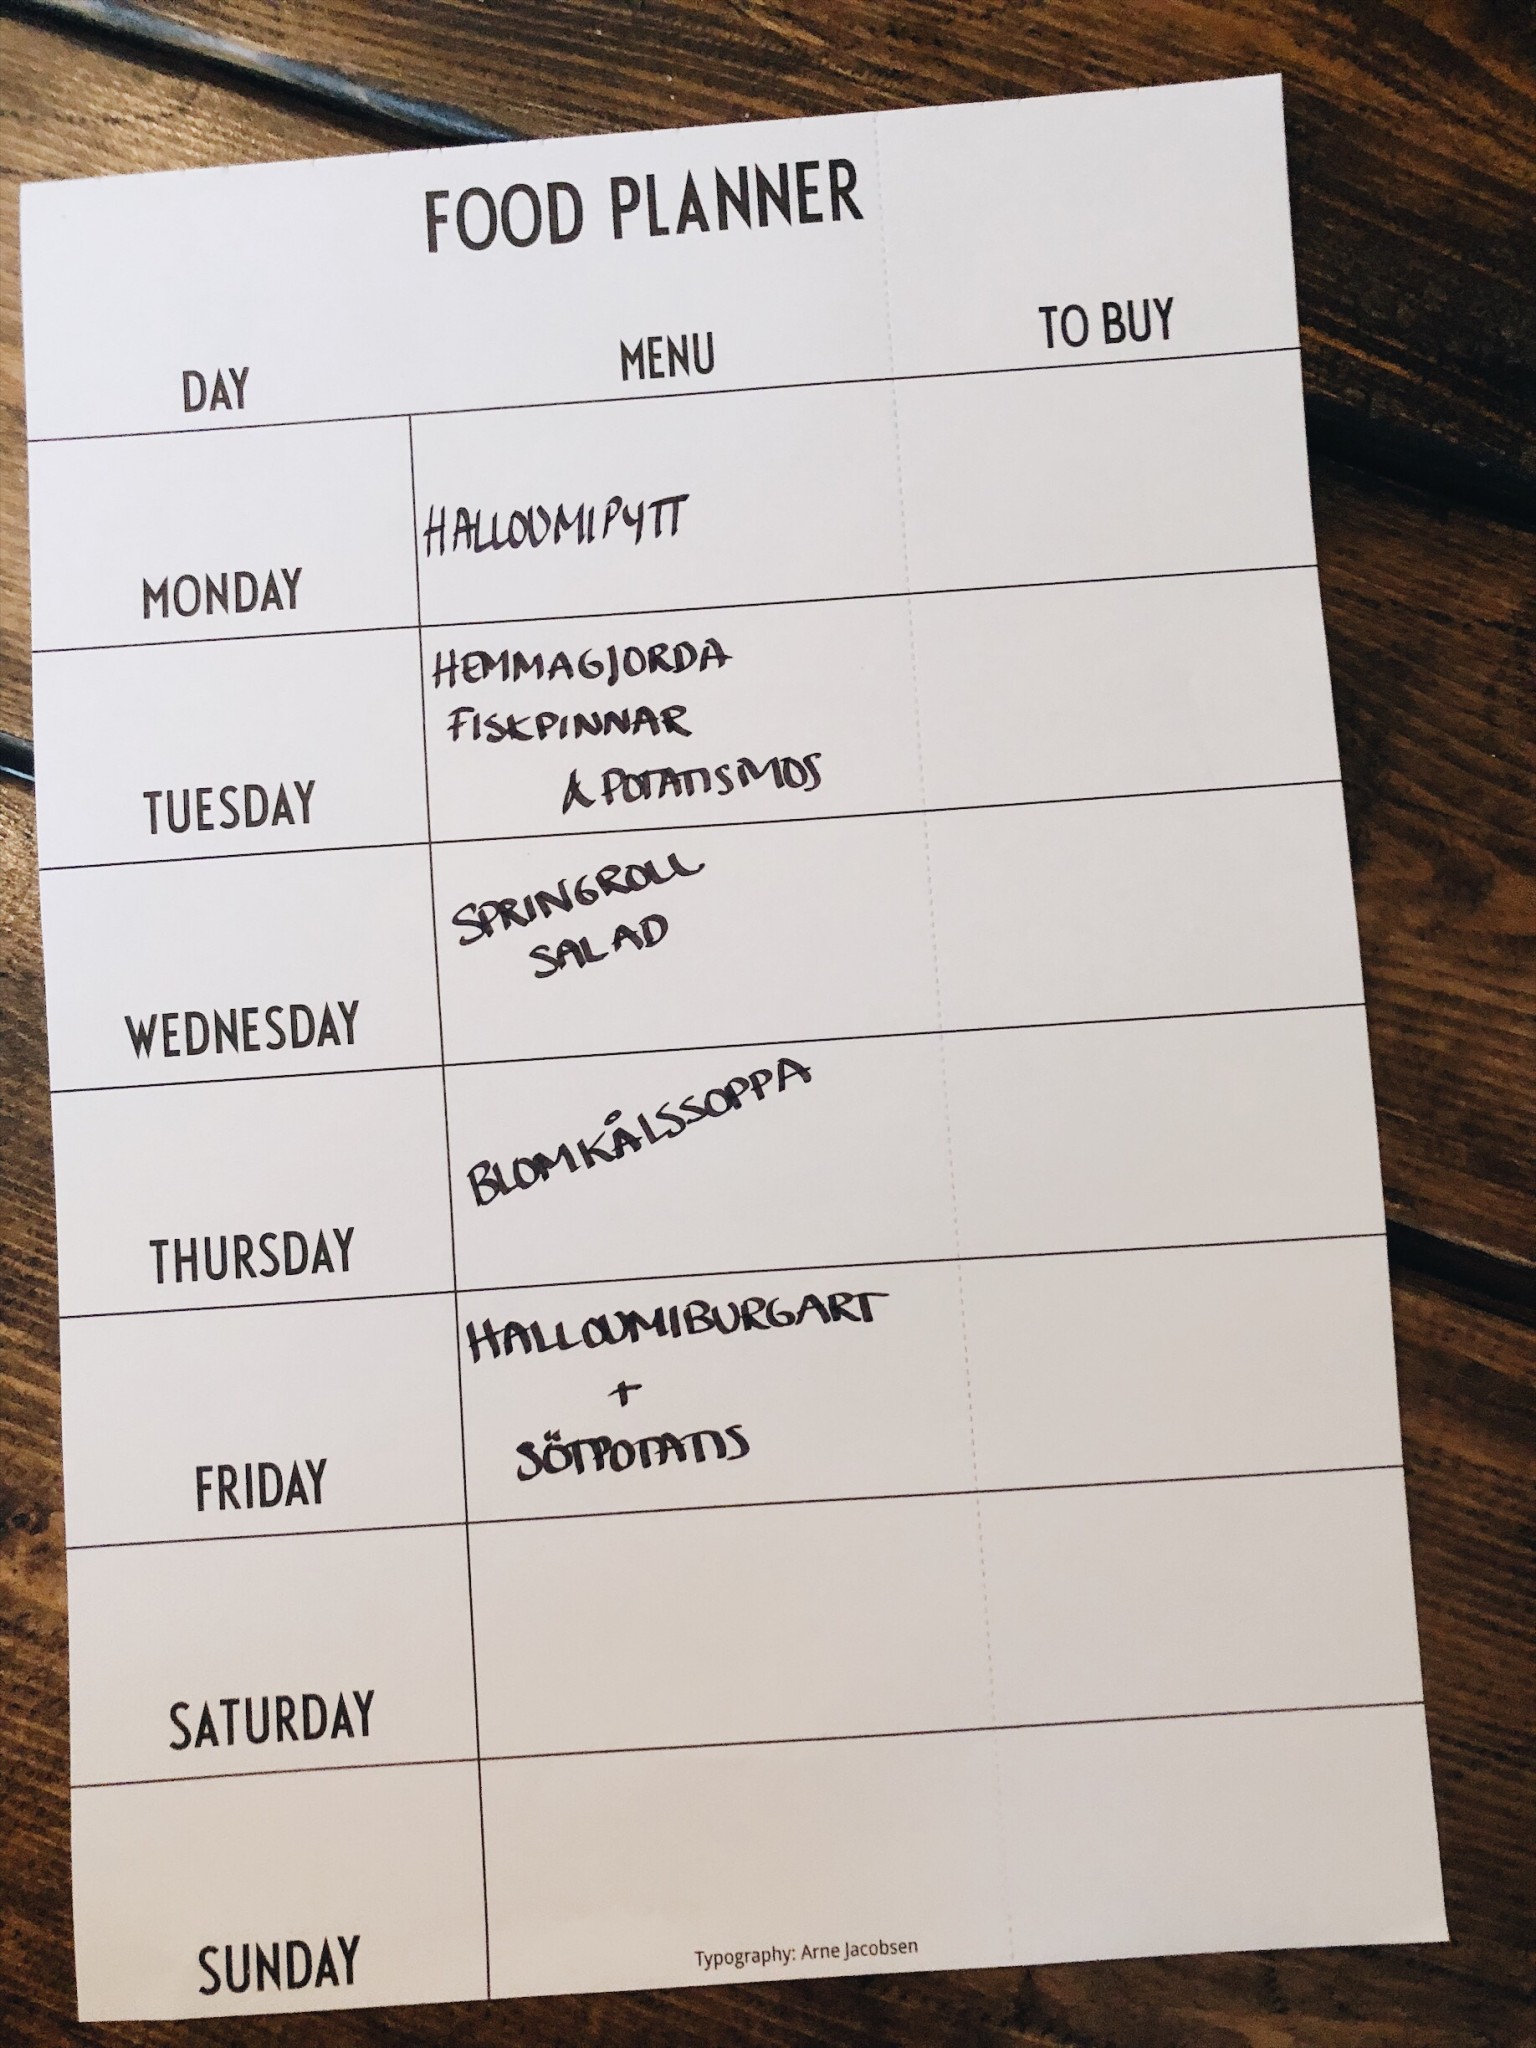 FOOD PLANNER
DAY
MENU
TO BUY
MONDAY
HALLOUMIPYTT
TUESDAY
HEMMAGJORDA
FISKPINNAR
& POTATISMOS
WEDNESDAY
SPRINGROLL
SALAD
THURSDAY
BLOMKÅLSSOPPA
FRIDAY
HALLOUMIBURGART
+
SÖTPOTATIS
SATURDAY
SUNDAY
Typography: Arne Jacobsen